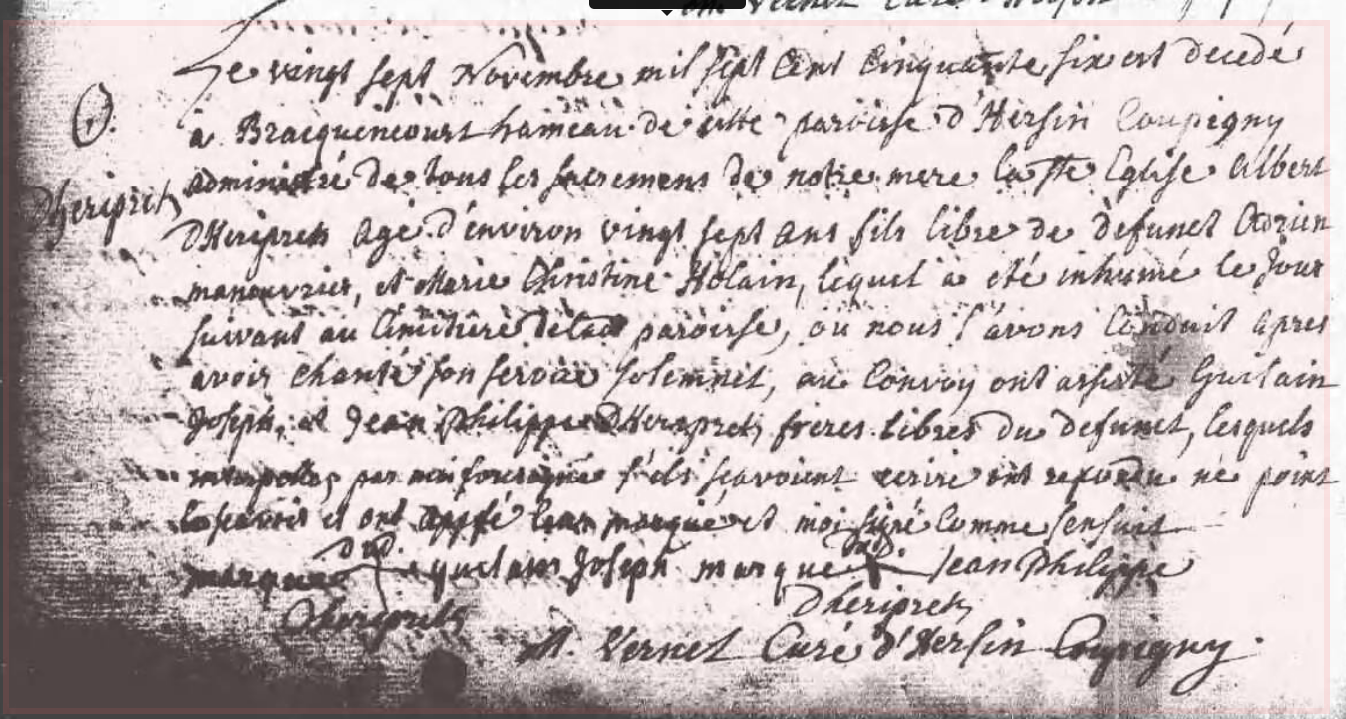 Vernet Curé d'
Le vingt sept Novembre mil sept Cent Cinquante six est decedé
à Bracquencourt hameau de cette paroisse d'Hersin Coupigny
administré de tous les sacremens de notre mere la Ste Eglise Albert
Dheripretz
DHeripretz agé d'environ vingt sept ans fils libre de defunct Adrien
manouvrier, et Marie Christine Holain, lequel a eté inhumé le jour
suivant au Cimitière de lad paroisse, où nous l'avons Conduit apres
avoir chanté son service solemnel, au Convoy ont assisté Guislain
Joseph, et Jean Philippe DHeripretz freres libres du defunct, lesquels
interpellés par moi soussigné s'ils scavoient ecrire ont repondu ne point
le scavoir et ont apposé leur marque et moi signé Comme s'ensuit
marque dud. guilain Joseph marque dud. Jean Philippe
Dheripretz Dheripretz
A. Vernet Curé d'Hersin Coupigny